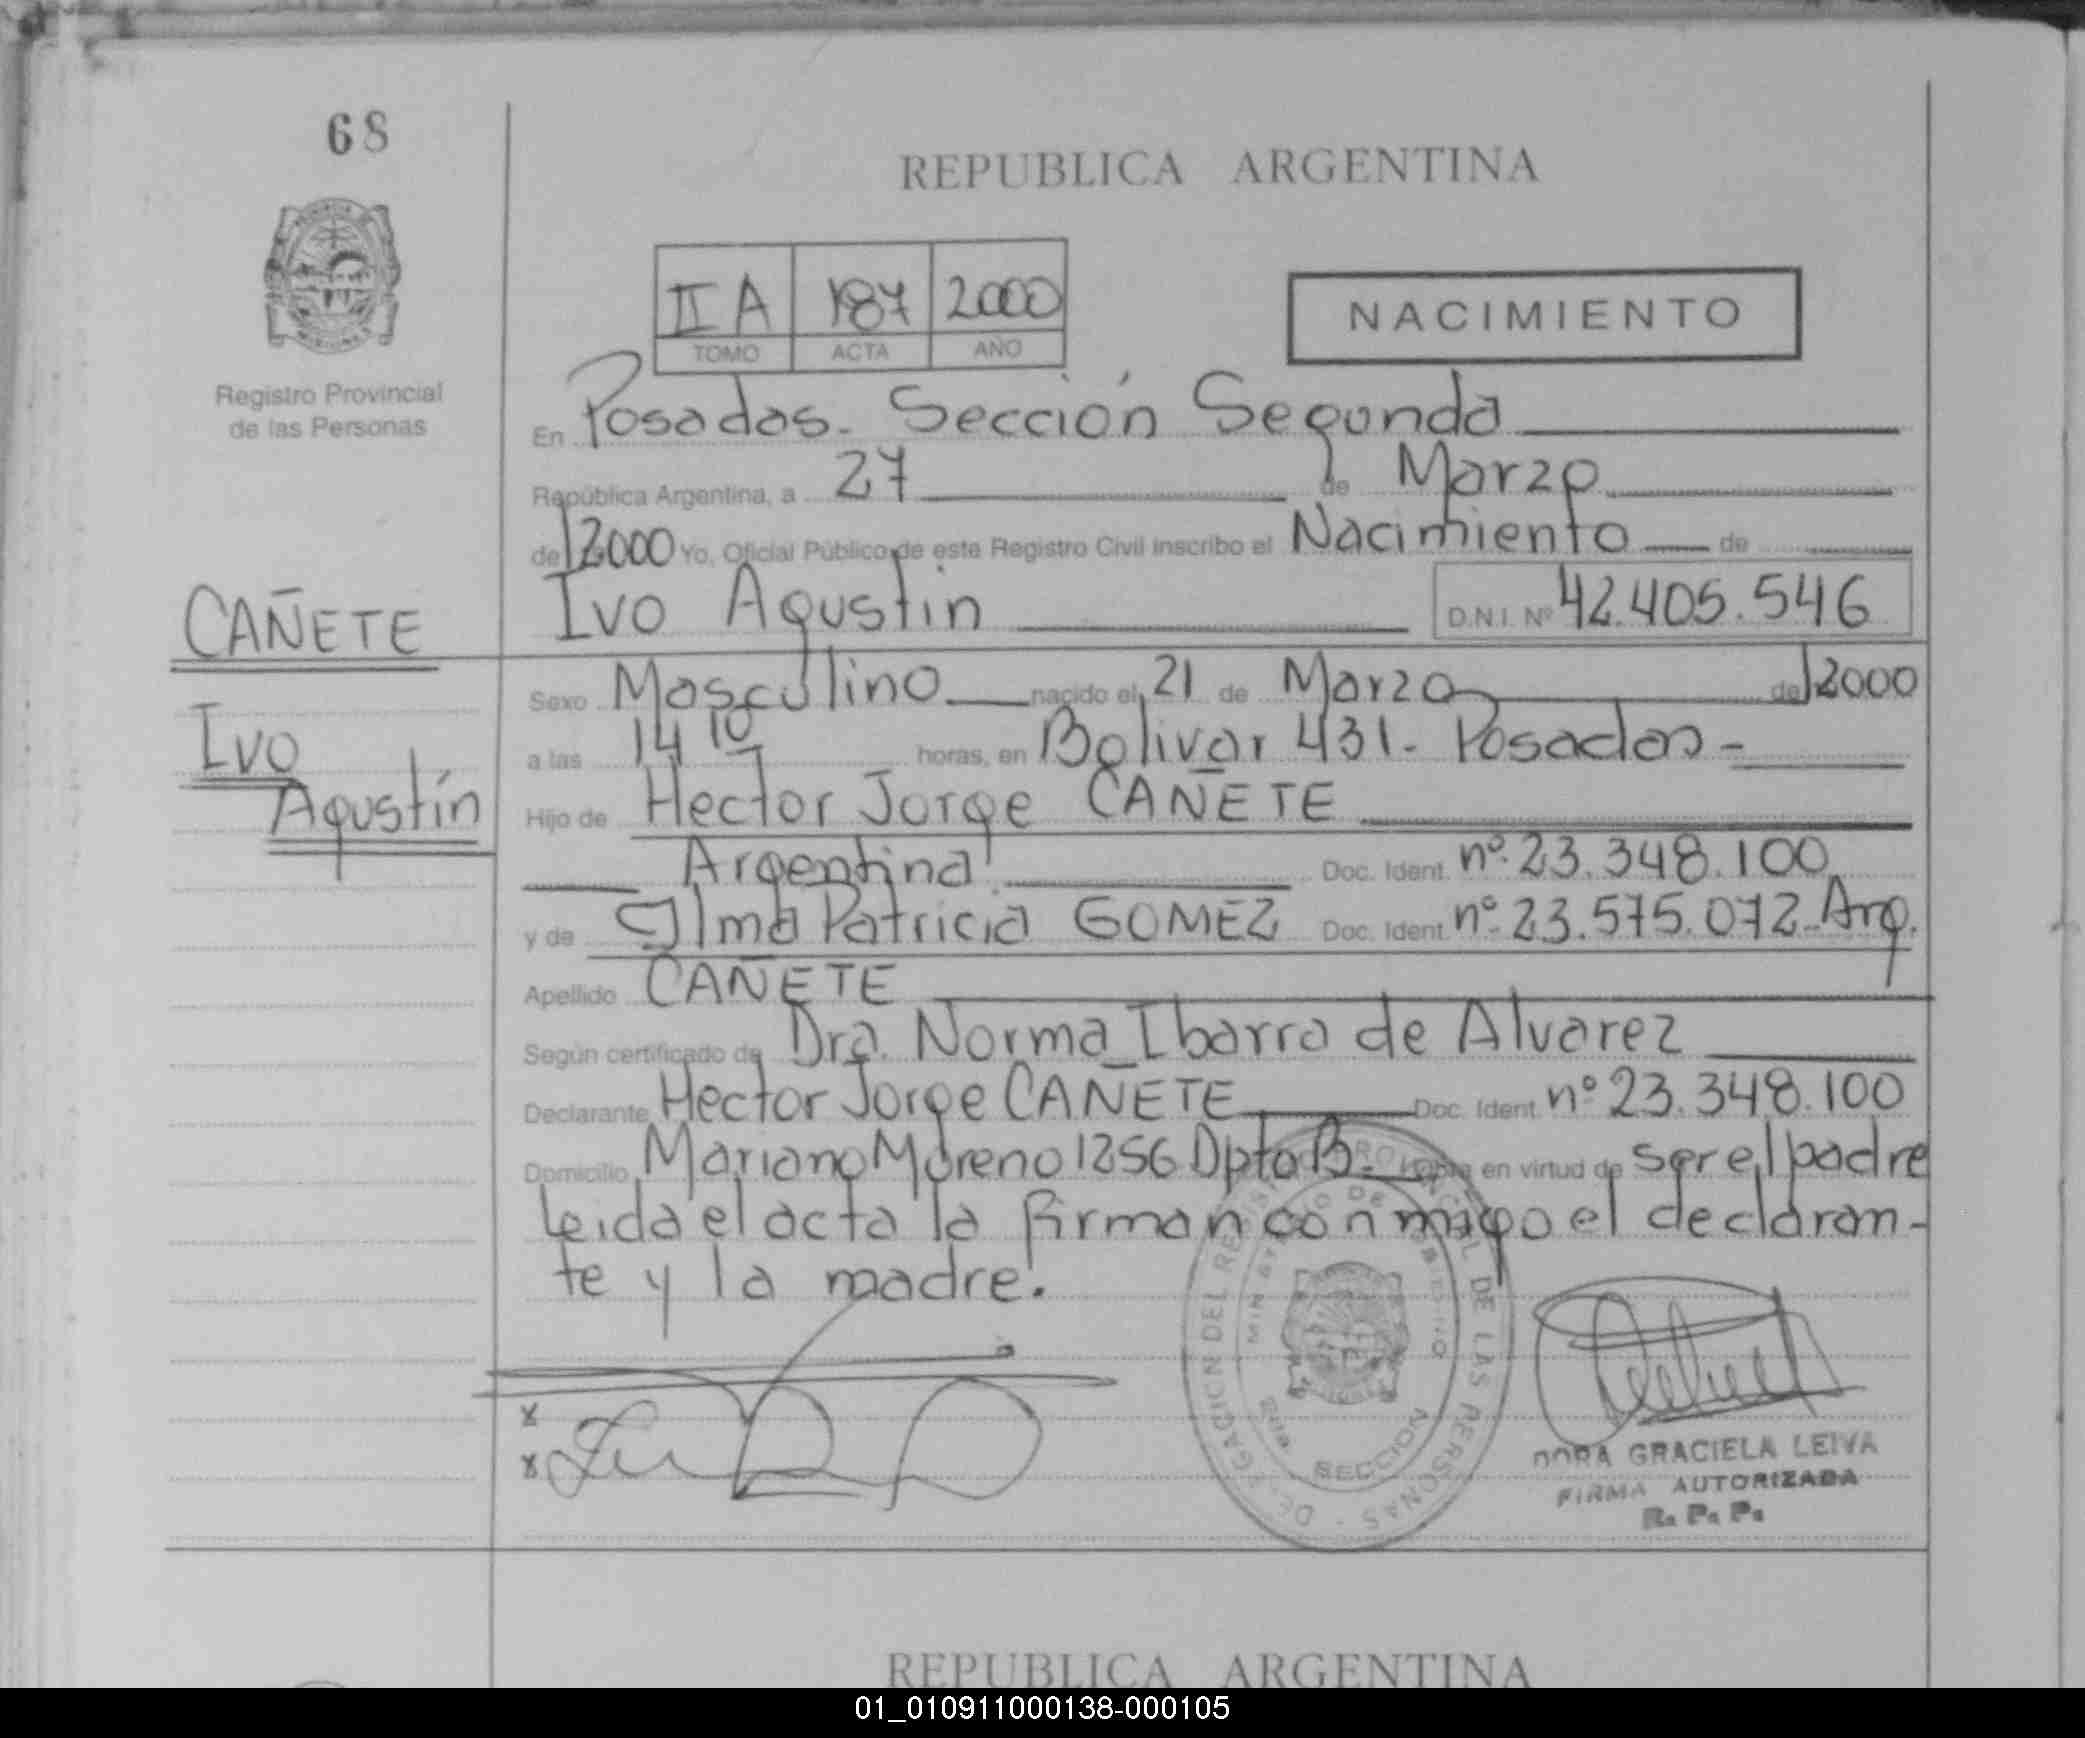 68
REPUBLICA ARGENTINA
II A 187 2000
TOMO ACTA AÑO
NACIMIENTO
Registro Provincial
de las Personas
En Posadas. Sección Segunda
República Argentina, a 27 de Marzo
de 2000 Yo, Oficial Público de este Registro Civil inscribo el Nacimiento de
CAÑETE
Ivo Agustin D.N.I. Nº 42.405.546
Sexo Masculino nacido el 21 de Marzo de 2000
Ivo
a las 14 10 horas, en Bolivar 431. Posadas -
Agustín
Hijo de Hector Jorge CAÑETE
Argentina Doc. Ident. nº 23.348.100
y de Ilma Patricia GOMEZ Doc. Ident. nº 23.575.072. Arg.
Apellido CAÑETE
Según certificado de Dra. Norma Ibarra de Alvarez
Declarante Hector Jorge CAÑETE Doc. Ident. nº 23.348.100
Domicilio Mariano Moreno 1256 Dpto B. en virtud de ser el padre
Leida el acta la firman conmigo el declaran-
te y la madre.
DELEGACION DEL REGISTRO PROVINCIAL DE LAS PERSONAS
MINISTERIO DE GOBIERNO
SECCION
DORA GRACIELA LEIVA
FIRMA AUTORIZADA
R. P. P.
REPUBLICA ARGENTINA
01_010911000138-000105